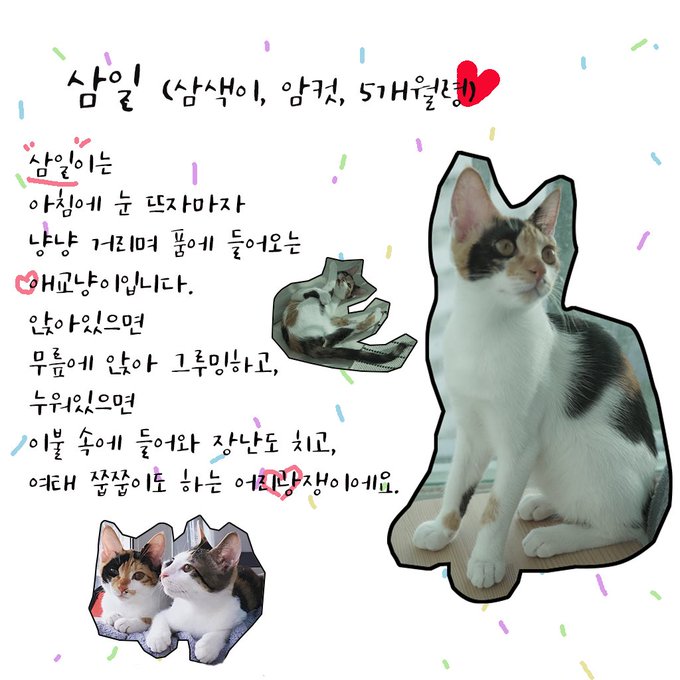 삼일 (삼색이, 암컷, 5개월령)
"삼일"이는
아침에 눈 뜨자마자
냥냥 거리며 품에 들어오는
애교냥이입니다.
앉아있으면
무릎에 앉아 그루밍하고,
누워있으면
이불 속에 들어와 장난도 치고,
여태 쭙쭙이도 하는 어리광쟁이에요.